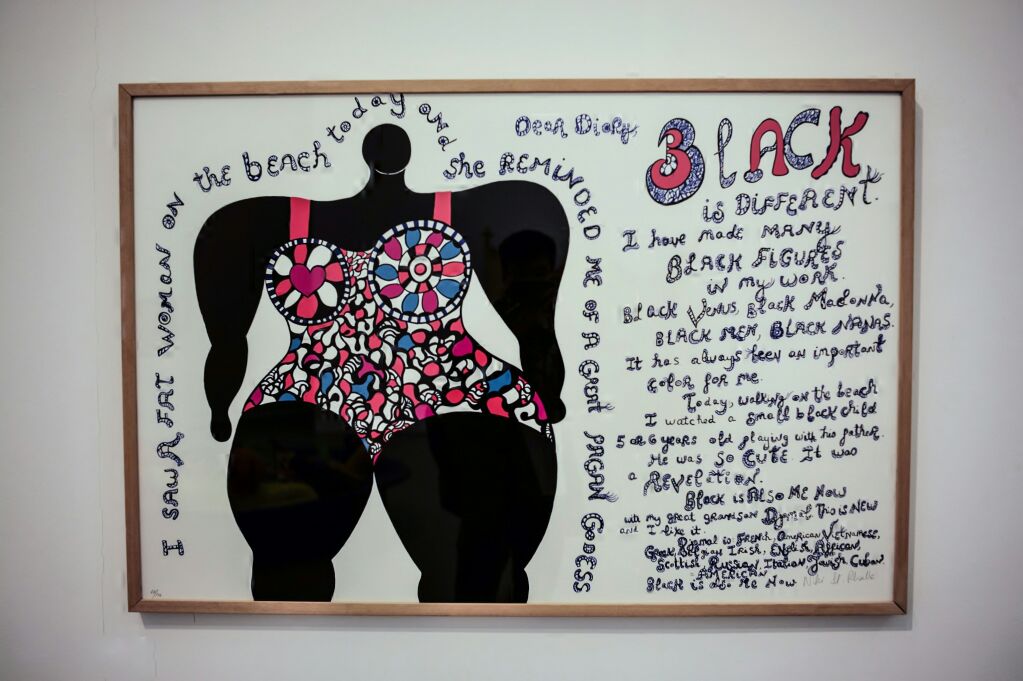 I SAW A FAT WOMAN ON the beach today and she REMINDED ME OF A GREAT PAGAN GODESS
Dear Diary,
BLACK
is DIFFERENT.
I have made MANY
BLACK FIGURES
in my work.
BLACK Venus, Black Madonna,
BLACK MEN, BLACK NANAS.
It has always been an important
color for me.
Today, walking on the beach
I watched a small black child
5 or 6 years old playing with his father.
He was SO CUTE It was
a REVELATION.
Black is Also Me Now
with my great grandson Djamal This is NEW
and I like it.
Djamal is French, American, Vietnamese,
Greek, Belgian, Irish, English, African,
Scottish, Russian, Italian, Jewish, Cuban.
AMERICAN
Black is also Me Now